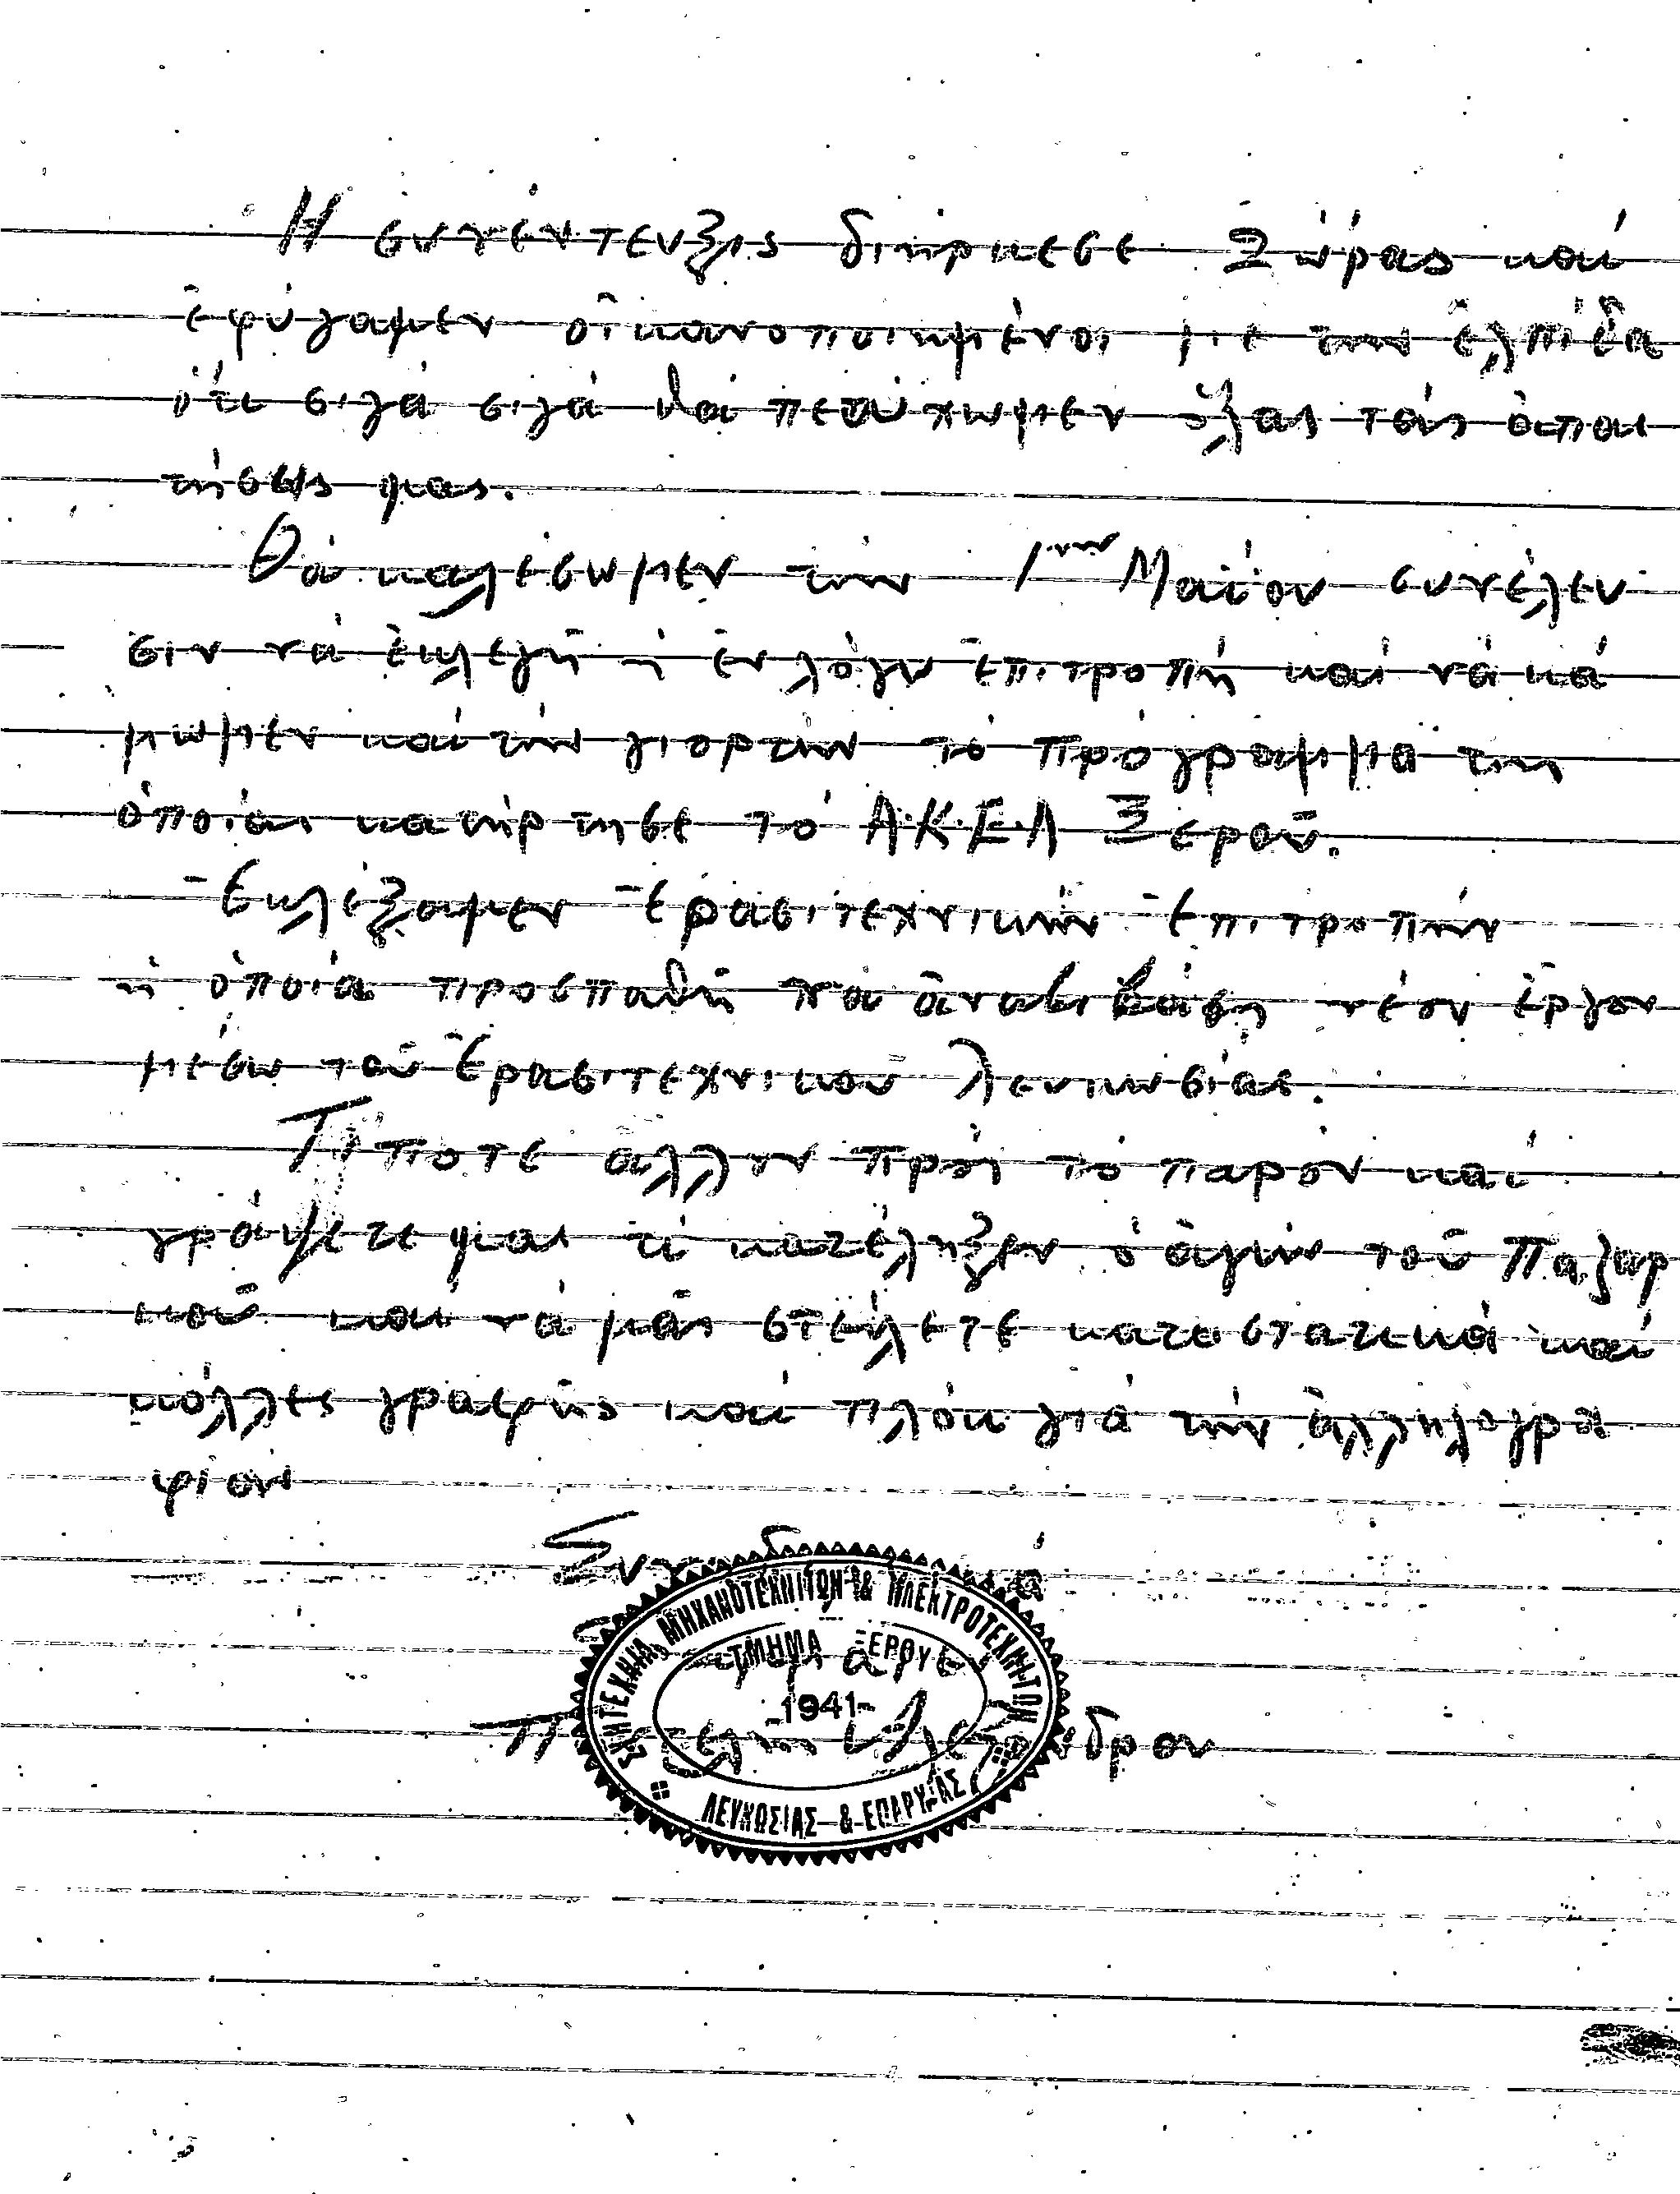 Η συνέντευξις διήρκεσε 2 ὥρας καί
ἐφύγαμεν οἱκανοποιημένοι μέ τήν ἐλπίδα
ὅτι σιγά σιγά θά πετύχωμεν ὅλας τάς ἀπαι
τήσεις μας.
Θά καλέσωμεν τήν 1ην Μαΐου συνέλευ
σιν νά ἐκλεγῆ ἡ ἐν λόγω ἐπιτροπή καί νά κά
μωμεν καί τήν γιορτήν τό πρόγραμμα της
ὁποίας κατήρτησε τό Α.Κ.Ε.Λ Ξεροῦ.
Ἐκλέξαμεν Ἐρασιτεχνικήν Ἐπιτροπήν
ἡ ὁποία προσπαθῆ νά ἀναβιβάση νέον ἔργον
μέσω τοῦ Ἐρασιτεχνικοῦ Λευκωσίας.
Τίποτε ἄλλον πρός τό παρόν καί
γράψετε μας τί κατέληξεν ὁ ἀγών τοῦ Παζαρ
κοῦ καί νά μᾶς στείλετε καταστατικά καί
κόλλες γραφῆς καί πλόκ γιά τήν ἀλληλογρα
φίαν
ΣΥΝΤΕΧΝΙΑ ΜΗΧΑΝΟΤΕΧΝΙΤΩΝ & ΗΛΕΚΤΡΟΤΕΧΝΙΤΩΝ
ΤΜΗΜΑ ΞΕΡΟΥ
1941
ΛΕΥΚΩΣΙΑΣ & ΕΠΑΡΧΙΑΣ